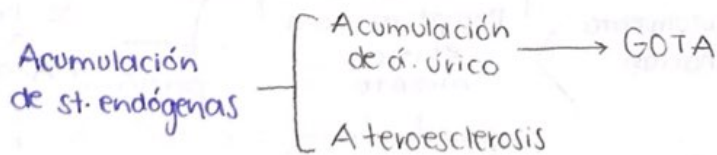 Acumulación
de st. endógenas
Acumulación
de á. úrico
GOTA
Ateroesclerosis